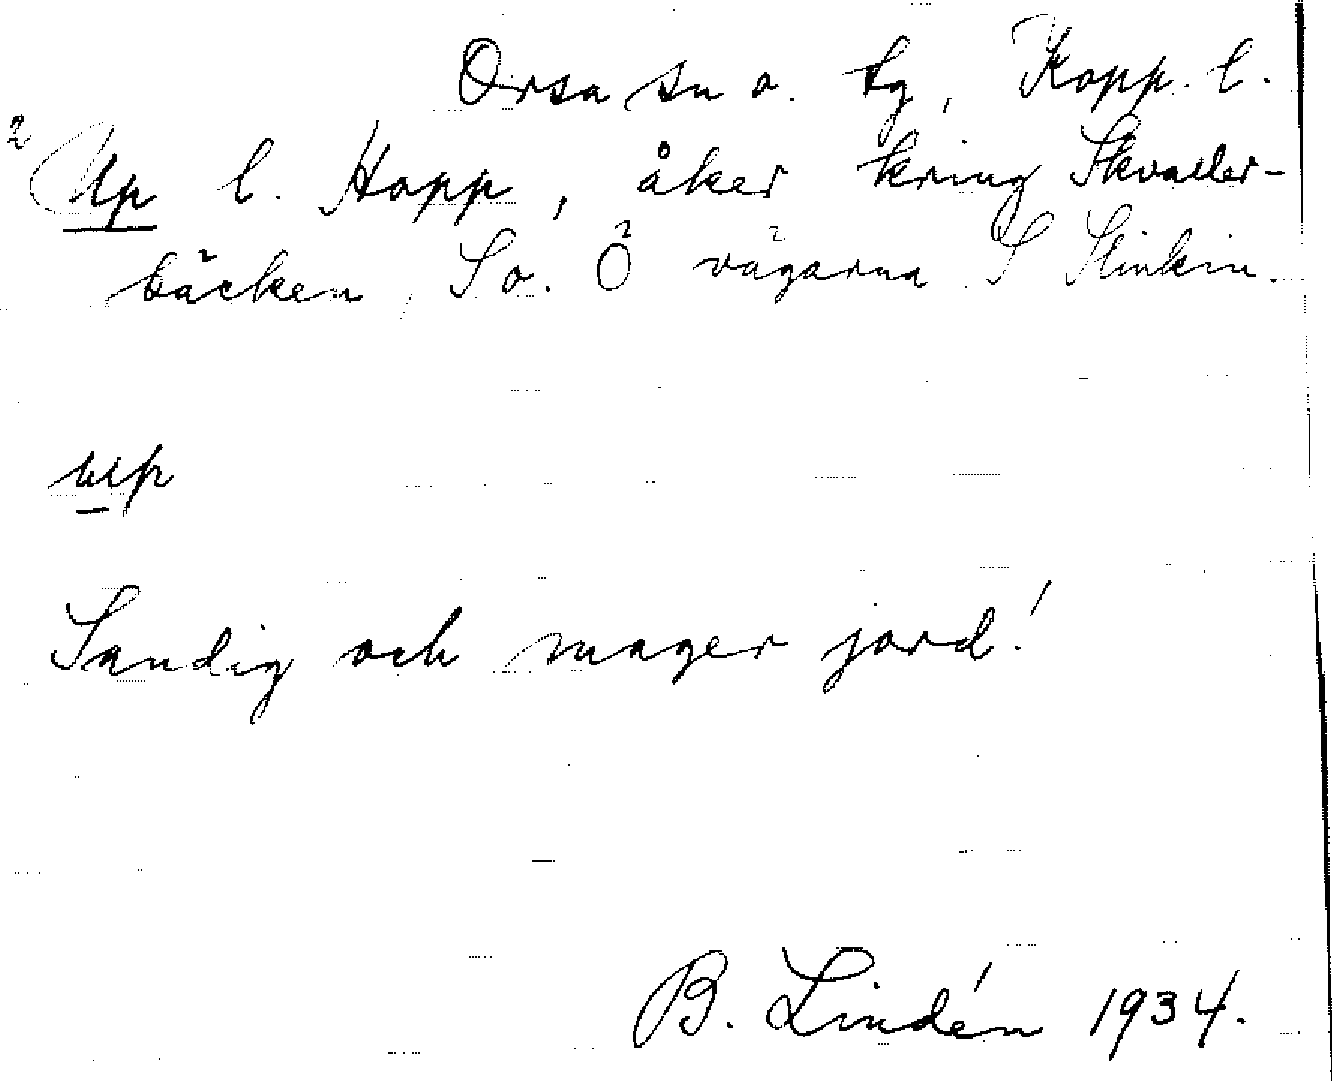 Orsa sn o. tg, Kopp. l.
2 Up l. Hopp, åker kring Skvaller-
bäcken, So. Ö vägarna S Slinkin.
up
Sandig och mager jord!
B. Lindén 1934.